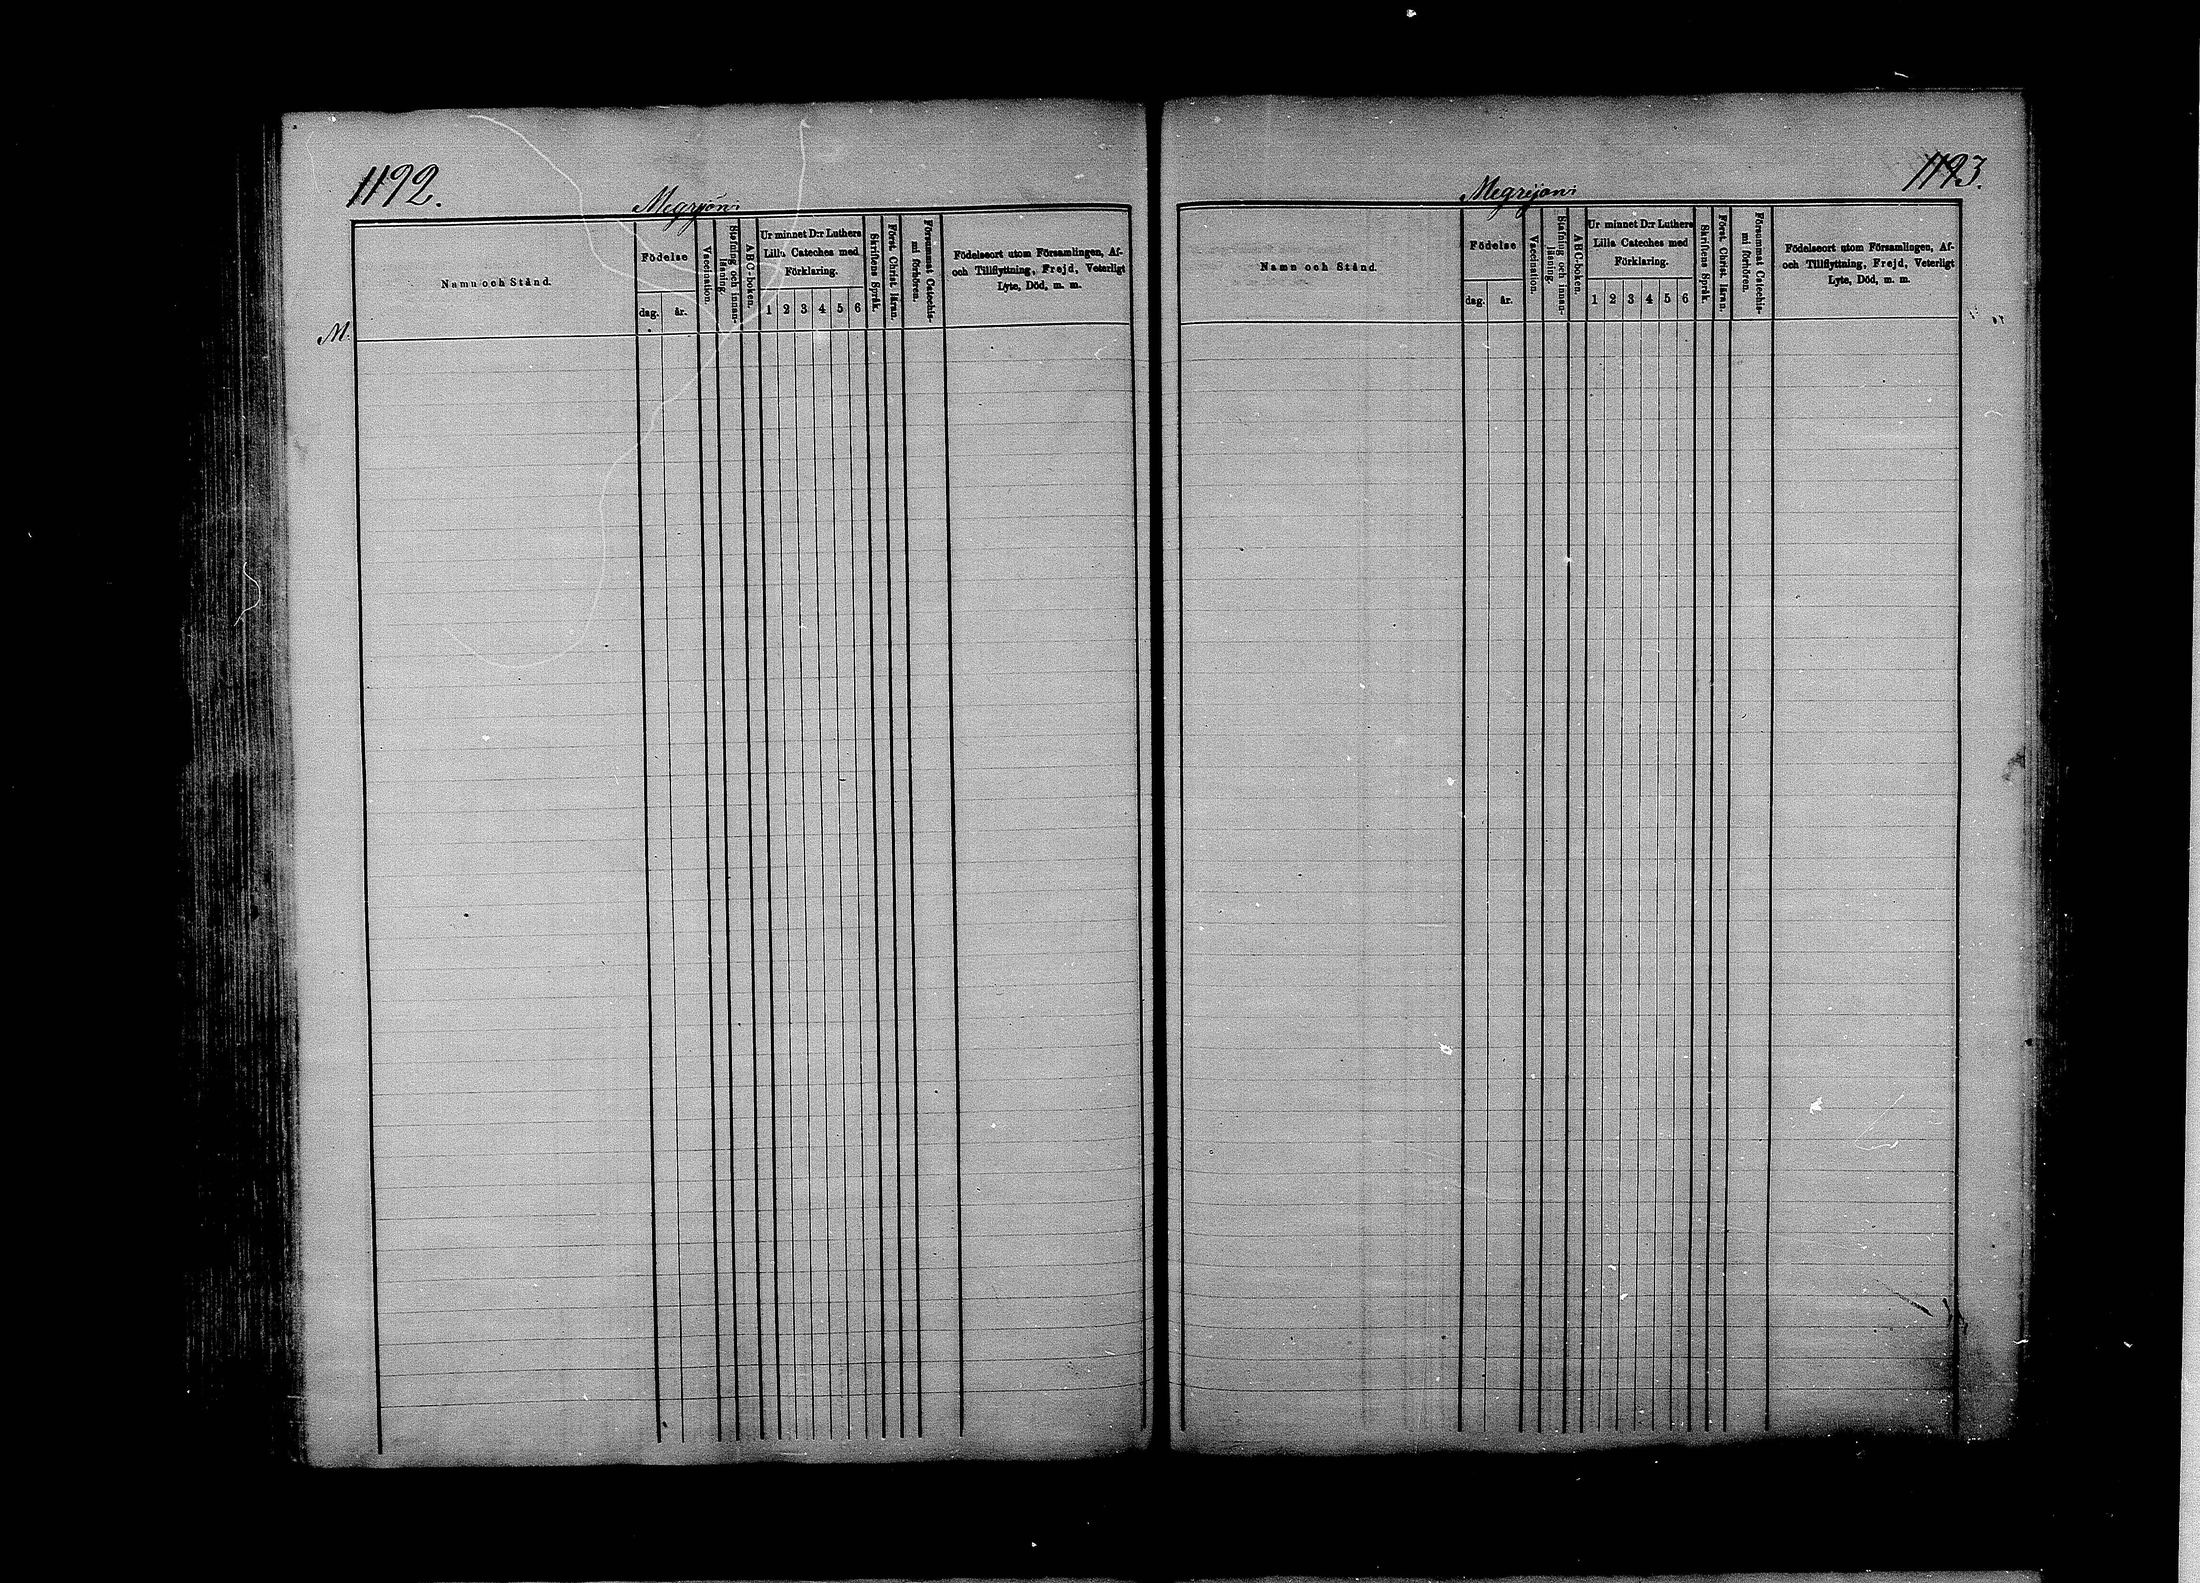 1192.
Megrijöni
Namn och Stånd.
Födelse
dag. år.
Vaccination.
Stafning och innan-
läsning.
ABC-boken.
Ur minnet D:r Luthers
Lilla Cateches med
Förklaring.
1 2 3 4 5 6
Skriftens Språk.
Först. Christ. läran.
Försummat Catechis-
mi förhören.
Födelseort utom Församlingen, Af-
och Tillflyttning, Frejd, Veterligt
Lyte, Död, m. m.
M.
1193.
Megrijöni
Namn och Stånd.
Födelse
dag. år.
Vaccination.
Stafning och innan-
läsning.
ABC-boken.
Ur minnet D:r Luthers
Lilla Cateches med
Förklaring.
1 2 3 4 5 6
Skriftens Språk.
Först. Christ. läran.
Försummat Catechis-
mi förhören.
Födelseort utom Församlingen, Af-
och Tillflyttning, Frejd, Veterligt
Lyte, Död, m. m.